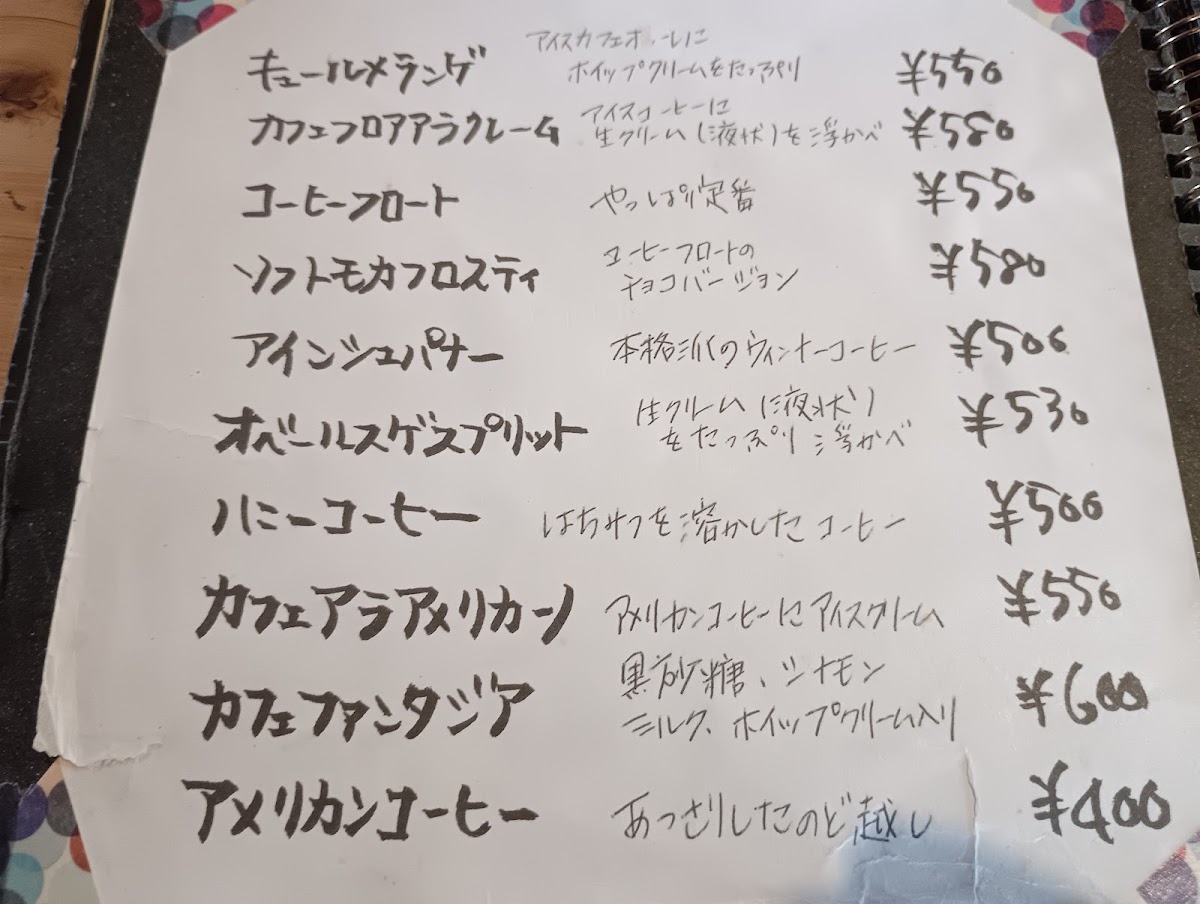 キュールメランゲ アイスカフェオーレに
ホイップクリームをたっぷり ¥550
カフェフロアアラクレーム アイスコーヒーに
生クリーム(液状)を浮かべ ¥580
コーヒーフロート やっぱり定番 ¥550
ソフトモカフロスティ コーヒーフロートの
チョコバージョン ¥580
アインシュパナー 本格派のウィンナーコーヒー ¥500
オベールスゲスプリット 生クリーム(液状)
をたっぷり浮かべ ¥530
ハニーコーヒー はちみつを溶かしたコーヒー ¥500
カフェアラアメリカーノ アメリカンコーヒーにアイスクリーム ¥550
カフェファンタジア 黒砂糖、シナモン
ミルク、ホイップクリーム入り ¥600
アメリカンコーヒー あっさりしたのど越し ¥400